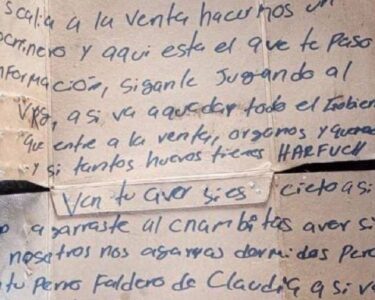 scalia a la venta hacernos un
ocrinero y aqui esta el que te paso
nformación, siganle Jugando al
Vrg, a si va aquedar todo el Gobier
que entre a la venta, organos y quemad
y si tantos huevos tienes HARFUCH
Ven tu aver si es cieto a si
agarraste al cnambitas aver si
nosotros nos agarras dormidos Pero
tu Perro Faldero de Claudia a si va